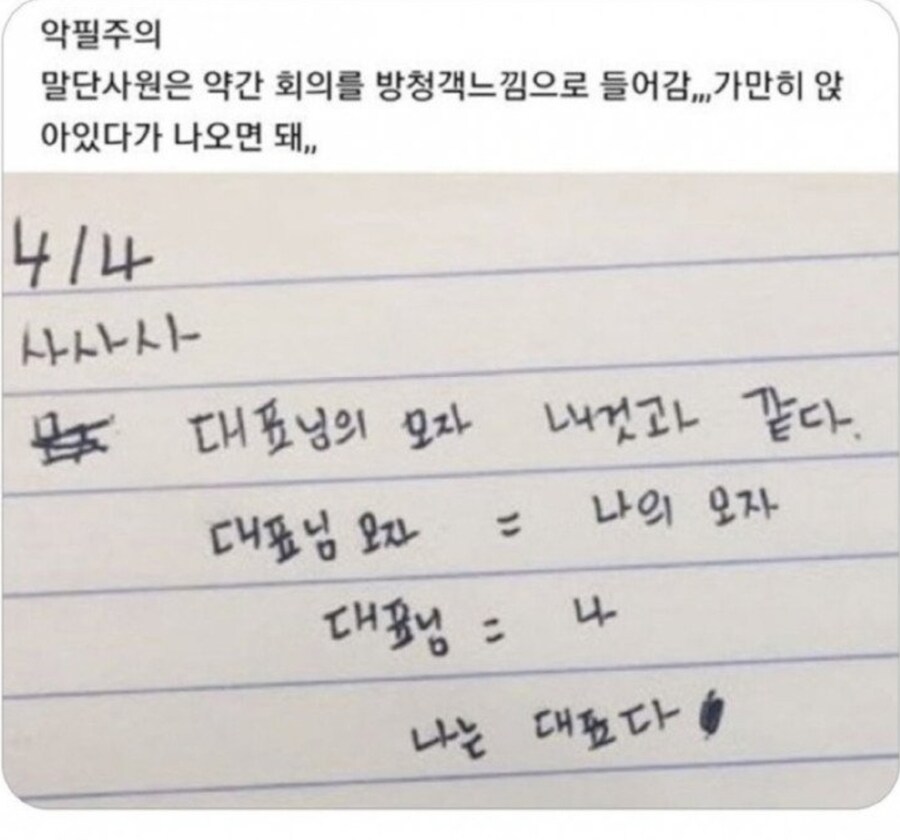 악필주의
말단사원은 약간 회의를 방청객느낌으로 들어감,,,가만히 앉
아있다가 나오면 돼,,
4/4
사사사
대표님의 모자 내것과 같다.
대표님 모자 = 나의 모자
대표님 = 나
나는 대표다